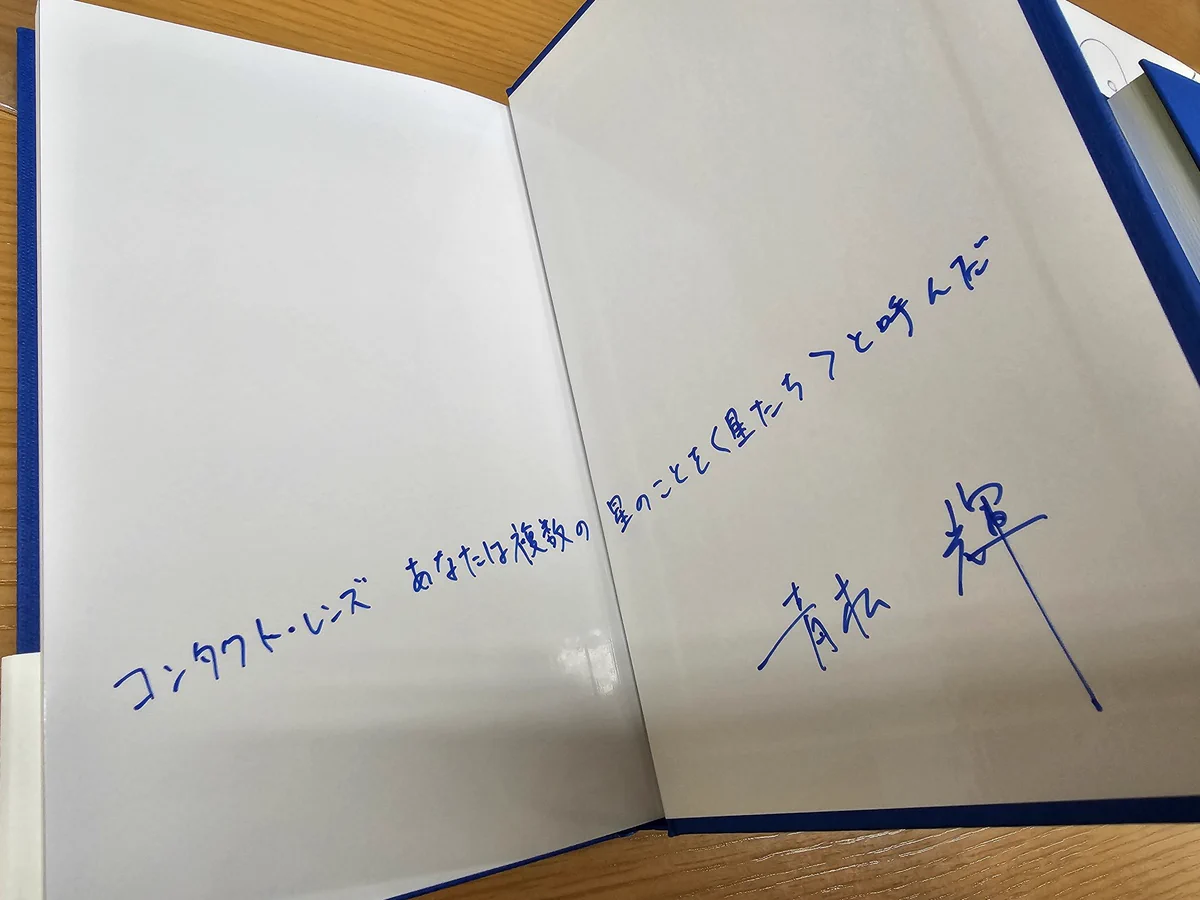 コンタクト・レンズ　あなたは複数の星のことを〈星たち〉と呼んだ
青松 輝